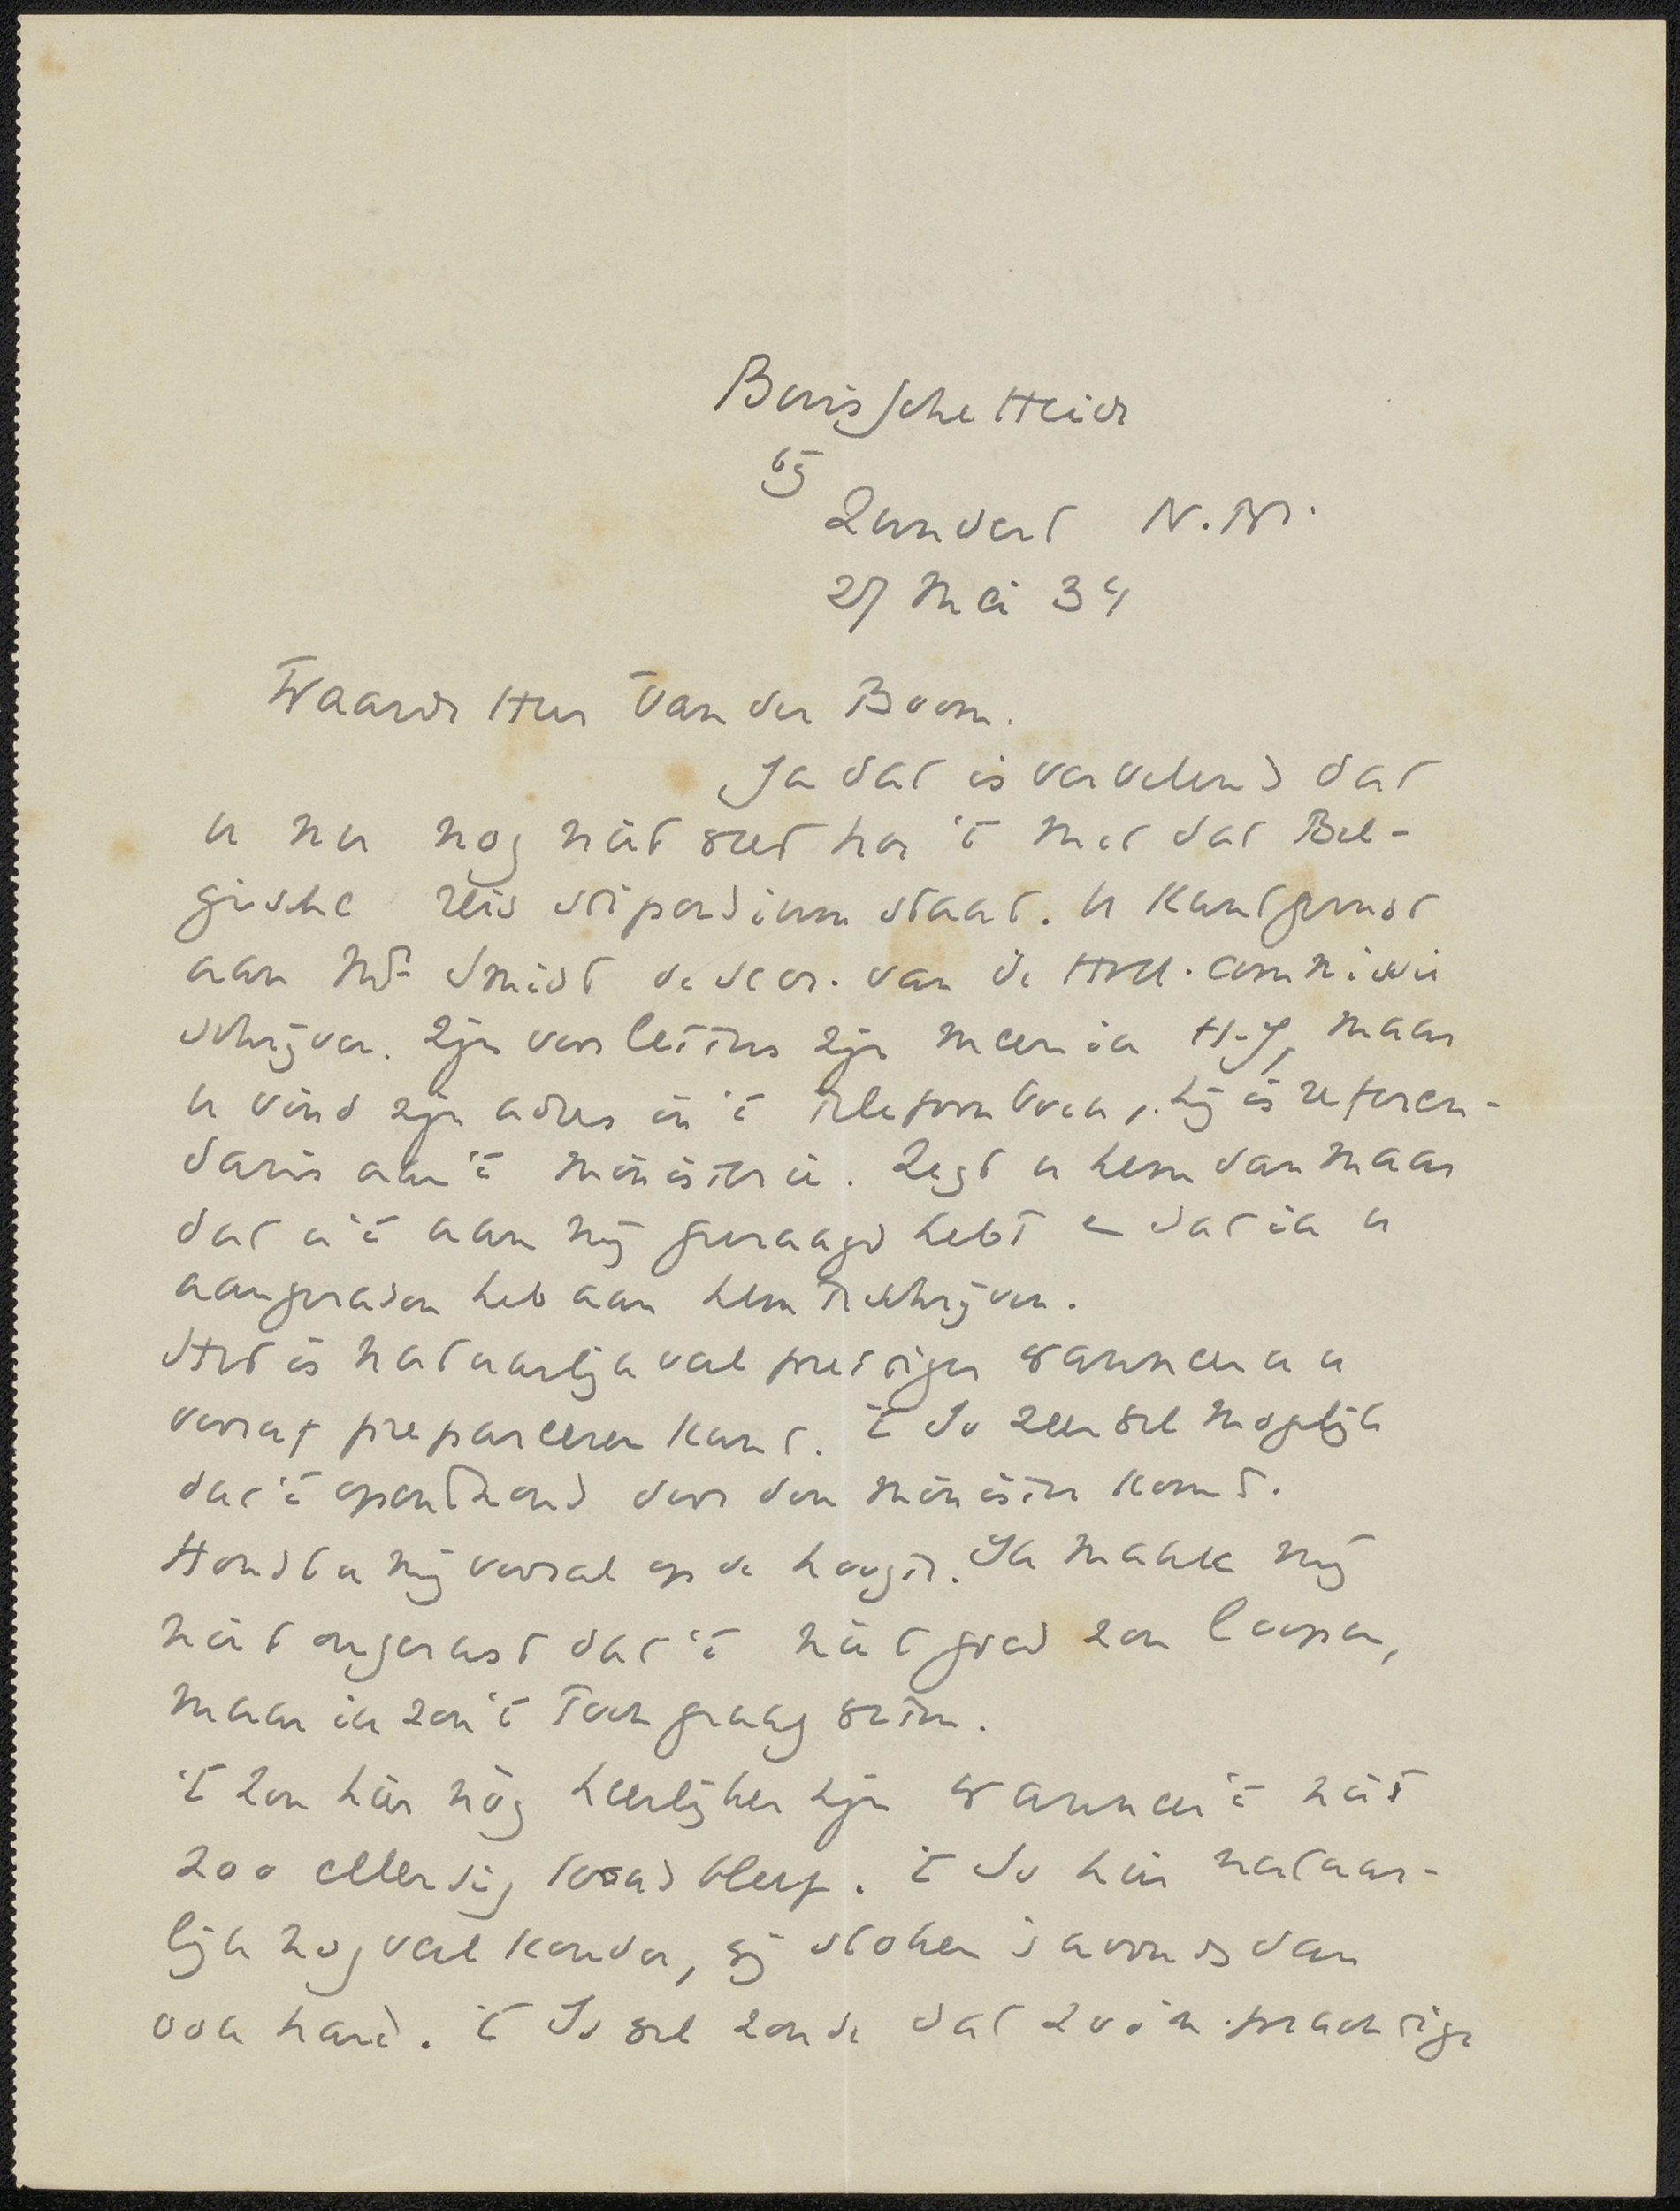 Buissche Heide
bij
Zundert N. Br.
27 Mei 34
Waarde Heer Van der Boom.
Ja dat is vervelend dat
u nu nog niet weet hoe 't met dat Bel-
gische reis stipendium staat. U kunt gerust
aan Mr Smidt de secr. van de Holl. commissie
schrijven. Zijn voorletters zijn meen ik H.J, maar
u vind zijn adres in 't telefoon boek, hij is referen-
daris aan 't ministerie. Zegt u hem dan maar
dat u 't aan mij gevraagd hebt en dat ik u
aangeraden heb aan hem te schrijven.
Het is natuurlijk veel prettiger wanneer u u
vooraf prepareeren kunt. 't Is zeer wel mogelijk
dat 't oponthoud door den minister komt.
Houdt u mij vooral op de hoogte. Ik maak mij
niet ongerust dat 't niet goed zou loopen,
maar ik zou 't toch graag weten.
't Zou hier nog heerlijker zijn wanneer 't niet
zoo ellendig koud bleef. 't Is hier natuur-
lijk nog veel kouder, wij stoken 's avonds dan
ook hard. 't Is wel zonde dat zoo'n prachtige